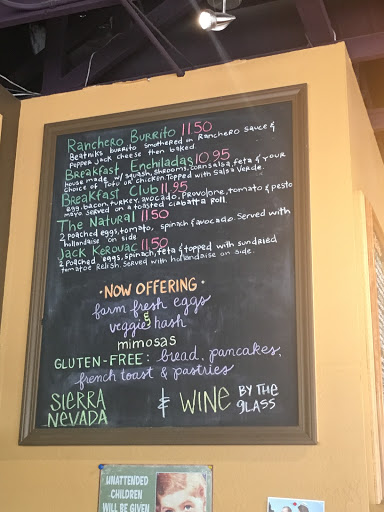 Ranchero Burrito 11.50
Beatniks burrito smothered in Ranchero sauce &
Pepper Jack cheese then baked
Breakfast Enchiladas 10.95
house made w/ squash, shrooms, corn salsa, feta & your
choice of Tofu or Chicken. Topped with Salsa Verde.
Breakfast Club 11.95
egg, bacon, turkey, avocado, provolone, tomato & pesto
mayo served on a toasted ciabatta roll
The Natural 11.50
2 poached eggs, tomato, spinach & avocado. Served with
hollandaise on side
Jack Kerouac 11.50
2 poached eggs, spinach, feta & topped with sundried
tomatoe relish. Served with hollandaise on side.
• NOW OFFERING •
farm fresh eggs
&
veggie hash
mimosas
GLUTEN-FREE: bread, pancakes,
french toast & pastries
SIERRA NEVADA & WINE BY THE glass
UNATTENDED
CHILDREN
WILL BE GIVEN